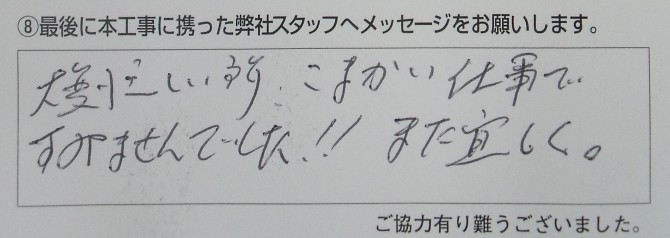 ⑧最後に本工事に携った弊社スタッフへメッセージをお願いします。
大変忙しい所、こまかい仕事で
すみませんでした!! また宜しく。
ご協力有り難うございました。